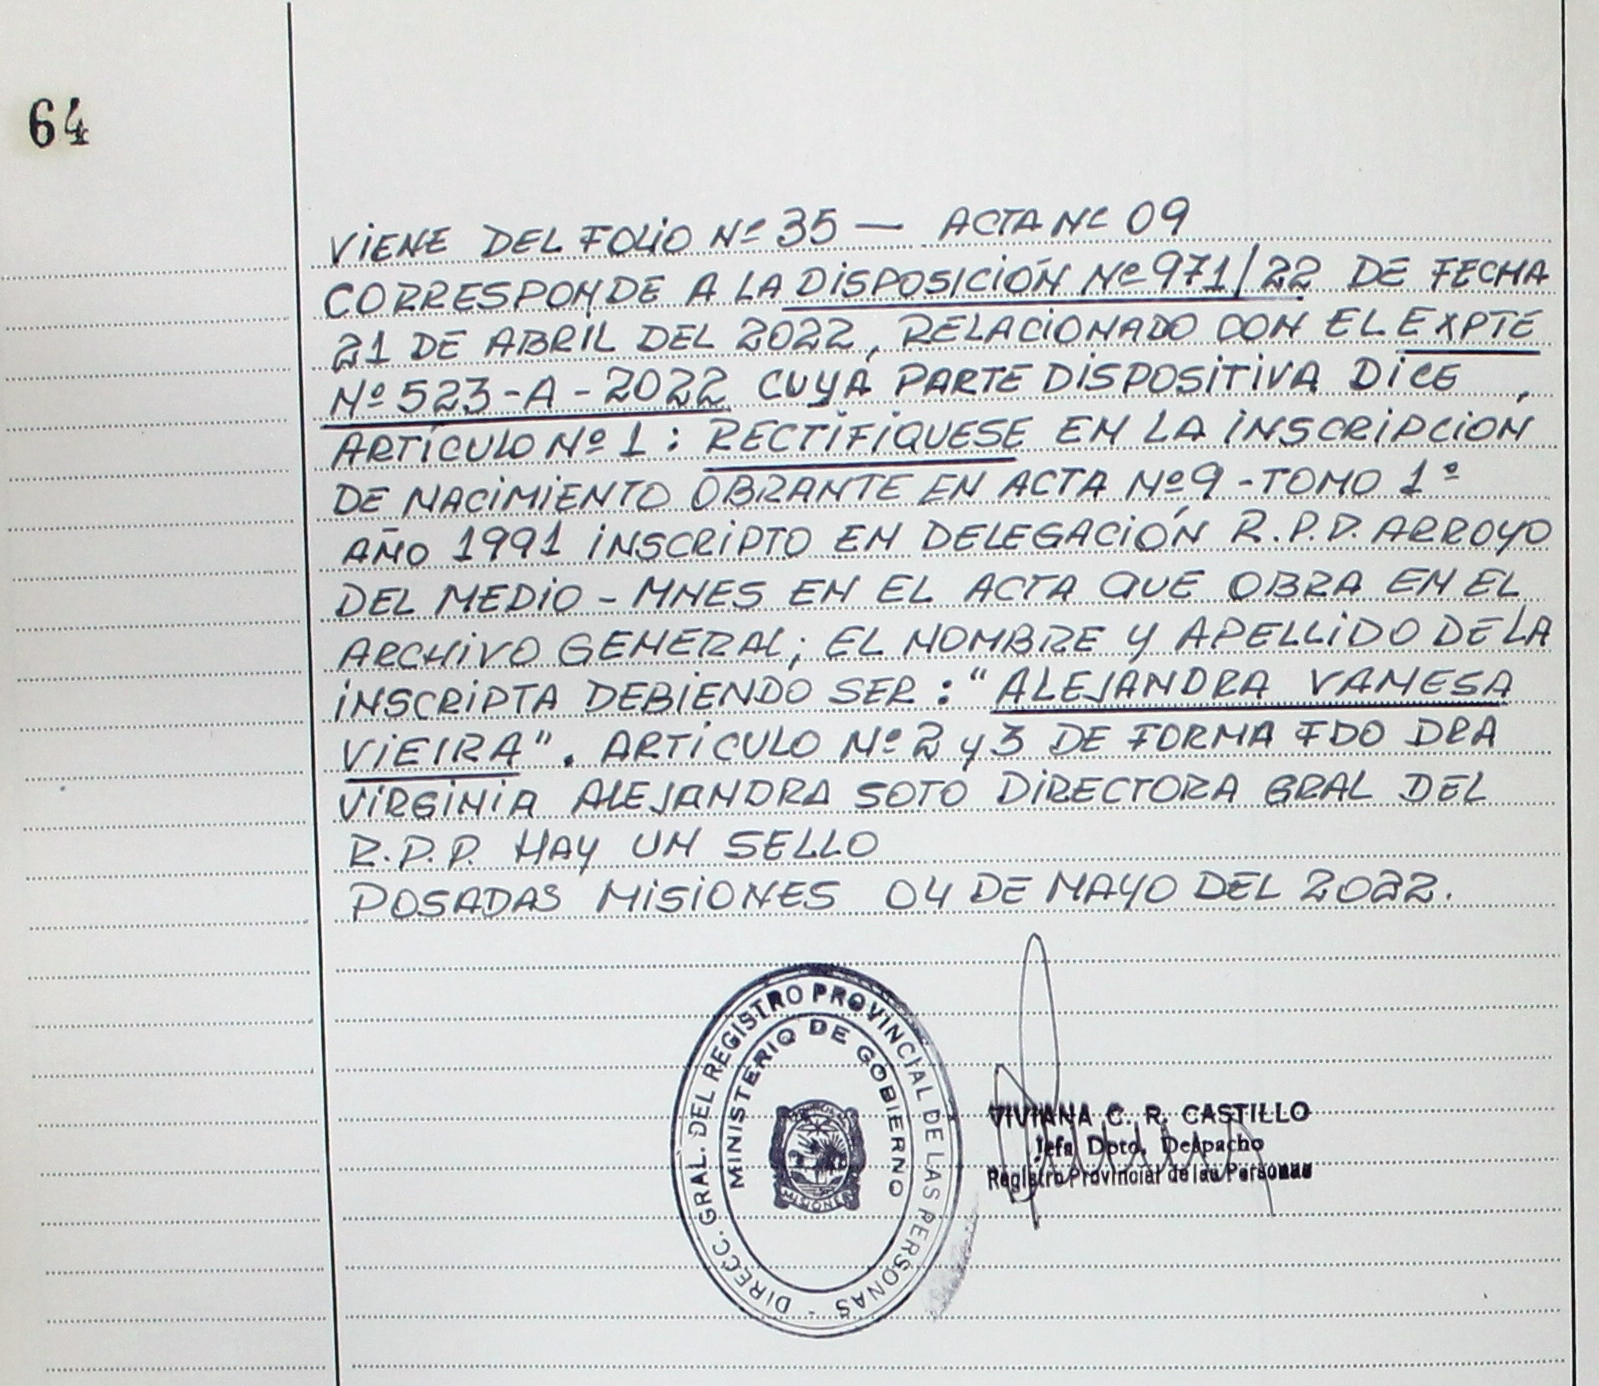 64
VIENE DEL FOLIO Nº 35 — ACTA Nº 09
CORRESPONDE A LA DISPOSICIÓN Nº 971/22 DE FECHA
21 DE ABRIL DEL 2022, RELACIONADO CON EL EXPTE
Nº 523-A-2022 CUYA PARTE DISPOSITIVA DICE,
ARTÍCULO Nº 1: RECTIFÍQUESE EN LA INSCRIPCIÓN
DE NACIMIENTO OBRANTE EN ACTA Nº 9 - TOMO 1º
AÑO 1991 INSCRIPTO EN DELEGACIÓN R.P.P. ARROYO
DEL MEDIO - MNES EN EL ACTA QUE OBRA EN EL
ARCHIVO GENERAL; EL NOMBRE Y APELLIDO DE LA
INSCRIPTA DEBIENDO SER: "ALEJANDRA VANESA
VIEIRA". ARTÍCULO Nº 2 y 3 DE FORMA FDO DRA
VIRGINIA ALEJANDRA SOTO DIRECTORA GRAL DEL
R.P.P. HAY UN SELLO
POSADAS MISIONES 04 DE MAYO DEL 2022.
DIRECC. GRAL. DEL REGISTRO PROVINCIAL DE LAS PERSONAS -
MINISTERIO DE GOBIERNO
MISIONES
VIVIANA C. R. CASTILLO
Jefa Dpto. Despacho
Registro Provincial de las Personas